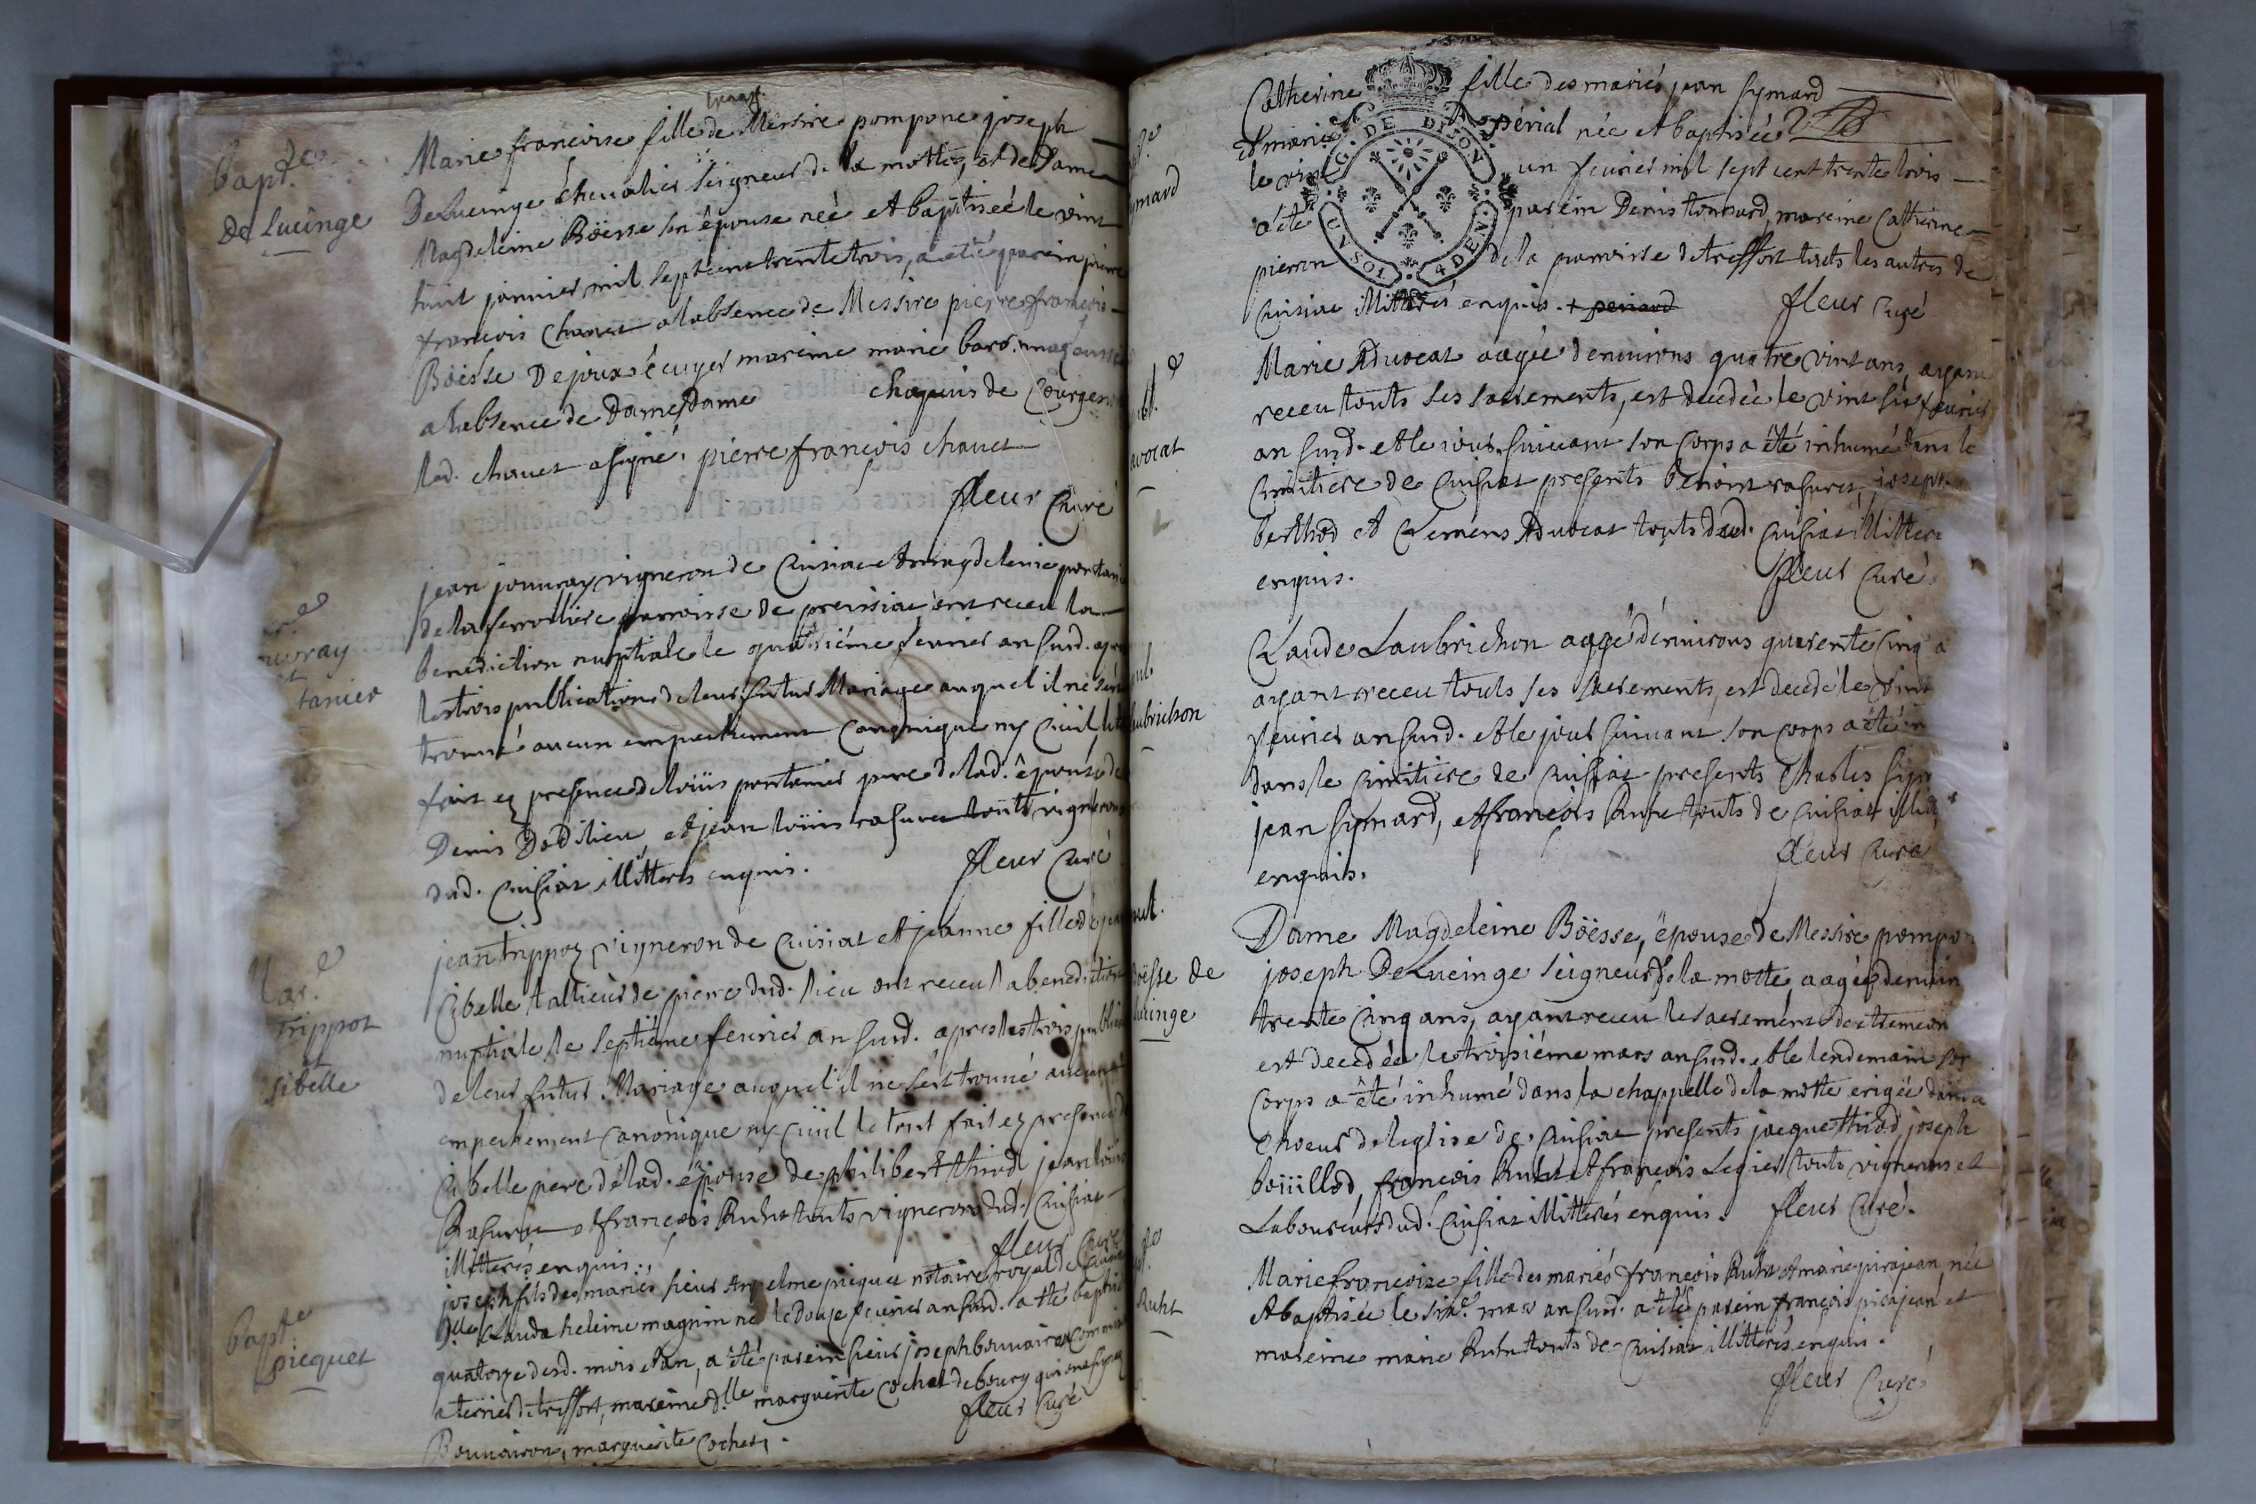 bapt.
De Lucinge
Marie francoise fille de Messire pompone joseph
De Lucinge chevalier seigneur de la motte, et de Dame
Magdeleine Böesse son épouse née et baptisée le vint
huit janvier mil sept cent trente trois, a été parein pierre
francois chanet a l'absence de Messire pierre francois
Böesse Dejoux écuyer mareine marie
a l'absence de Dame Dame chapuis de
lad. chanet a signé. pierre francois chanet
fleur Curé
uvray
tanier
jean jouuray vigneron de Cuisiat et magdeleine pontanier
de la paroisse de ont receu la
benediction nuptiale le quatriéme feurier an susd. apres
les trois publications de leur futur Mariage auquel il ne s'est
trouué aucun empechement canonique ny Ciuil, le tout
fait ez presence de loüis pontanier pere de lad. épouse de
Denis Dodilieu, et jean loüis rasurel touts vignerons
dud. Cuisiat illitterés enquis. fleur Curé
Mar.
trippoz
et
sibelle
jean trippoz vigneron de Cuisiat et jeanne fille de
Cibelle tallieur de pierre dud. lieu ont receu la benediction
nuptiale le septiéme feurier an susd. apres les trois
de leur futur Mariage auquel il ne s'est trouué aucun
empechement canonique ny Ciuil le tout fait ez presence
Cibelle pere de lad. épouse de philibert thivod jean loüis
Rasurel et francois Ruht touts vignerons dud. Cuisiat
illitterés enquis. fleur Curé
joseph fils des mariés sieur Anselme picquet notaire royal de
Dlle Clauda heleine magnin né le Douze feurier an susd. a été baptisé
quatorze desd. mois et an, a été parein sieur joseph bouuairon
a terrier de treffort, mareine dlle marguerite Cochet de bourg qui ont signé
Bouuairon, marguerite Cochet. fleur Curé
bapt.
picquet
Catherine fille des mariés jean symard
et marie née et baptisée
le vint un feurier mil sept cent trente trois
a été parein Denis tonnard, mareine Catherine
pierron de la parroisse de treffort touts les autres de
Cuisiat illitterés enquis. fleur Curé
G. DE DIJON
CINQ SOLS 4 DEN.
ymard
Marie Aduocat aagée d'enuirons quatre vint ans, ayant
receu touts ses sacrements, est decedée le vint six feurier
an susd. et le jour suiuant son corps a été inhumé dans le
Cimitiere de Cuisiat presents benoint rasurel, joseph
berthod et Clemens Aduocat touts dud. Cuisiat illitterés
enquis. fleur Curé
avocat
Claude Laubrichon aagé d'enuirons quarente Cinq
ayant receu touts ses sacrements, est decedé le vint
feurier an susd. et le jour suiuant son corps a été
dans le Cimitiere de Cuisiat presents Charles
jean symard, et francois Ruht touts de Cuisiat
enquis. fleur Curé
aubrichon
Dame Magdeleine Böesse, épouse de Messire pompon
joseph De Lucinge seigneur de la motte, aagée d'enuiron
trente Cinq ans, ayant receu le sacrement d'extremeon
est decedée le troisiéme mars an susd. et le lendemain son
Corps a été inhumé dans la chappelle de la motte erigée dans le
Choeur de leglise de Cuisiat presents jacque thivod, joseph
boüillod, francois Ruht et francois Legier touts vignerons et
Laboureurs dud. Cuisiat illitterés enquis. fleur Curé.
öesse de
ucinge
Marie francoise fille des mariés francois Ruht et marie pirajean, née
et baptisée le sixe. mars an susd. a été parein francois pirajean et
mareine marie Ruht touts de Cuisiat illitterés enquis.
fleur Curé
Ruht